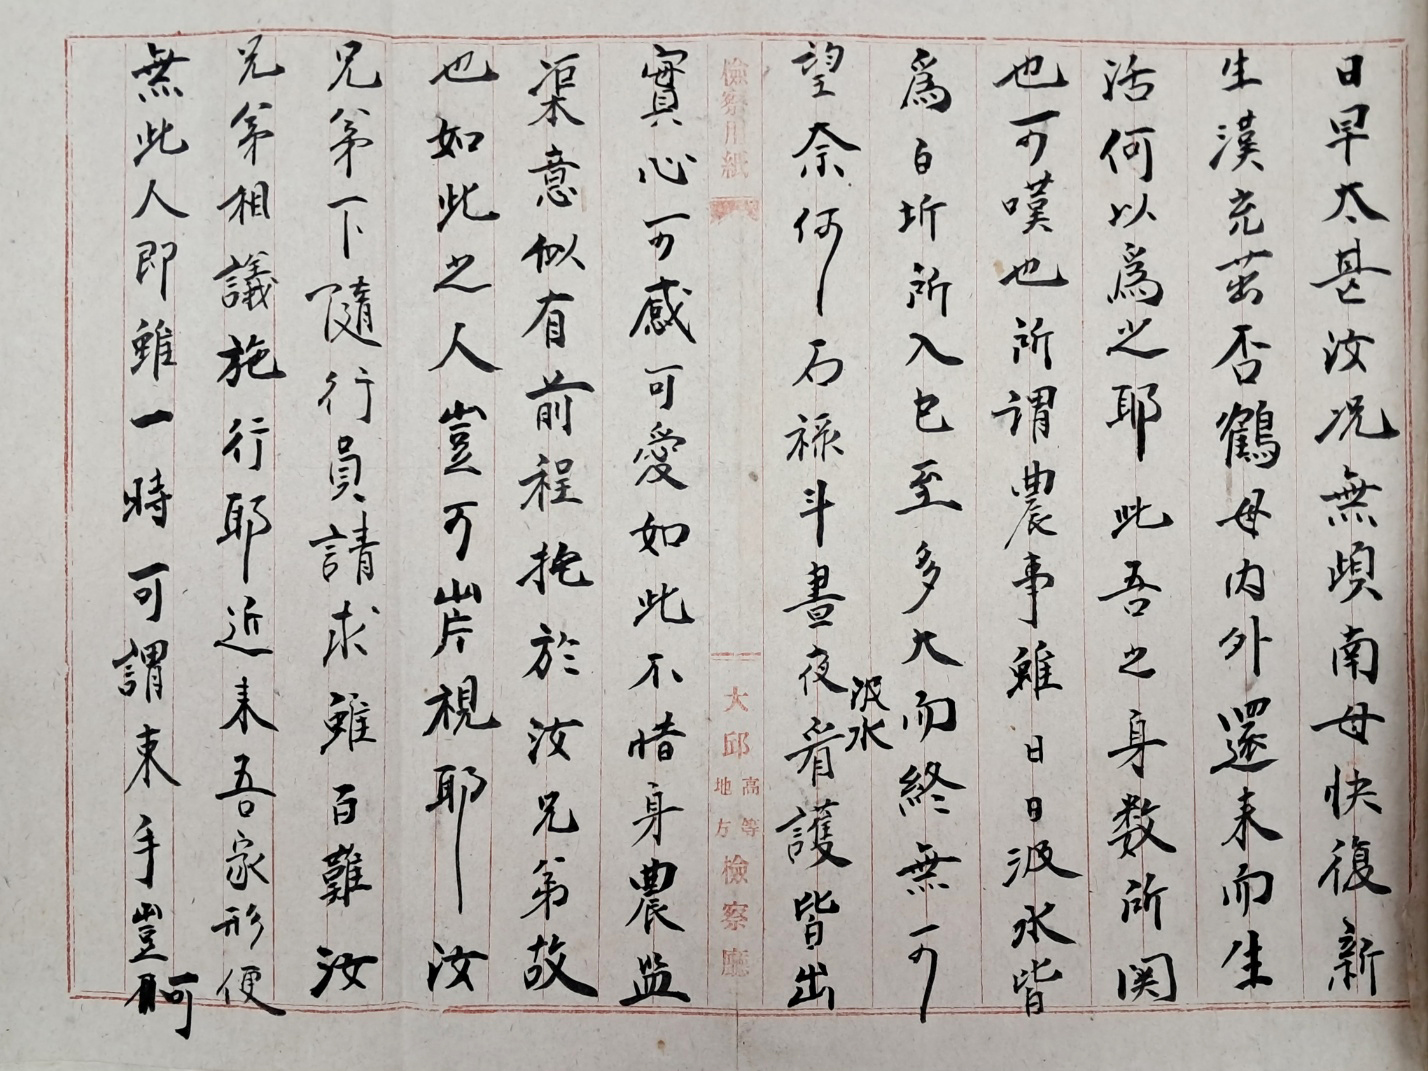 日早太甚汝况無頉南母快復新
生漢充茁否鶴母内外還来而生
活何以爲之耶此吾之身数所関
也可嘆也所謂農事雖日日汲水皆
爲白圻所入包至多大而終無可
望奈何〻石禄斗晝夜看護皆出
汲水
檢察用紙
大邱高等地方檢察廳
實心可感可愛如此不惜身農監
渠意似有前程抱於汝兄弟故
也如此之人豈可岸視耶 汝
兄弟下隨行員請求雖百難汝
兄弟相議施行耶近来吾家形便
無此人即雖一時可謂束手豈可